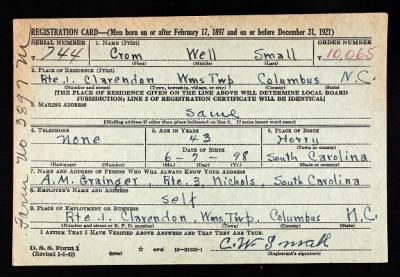 REGISTRATION CARD—(Men born on or after February 17, 1897 and on or before December 31, 1921)
SERIAL NUMBER 1. NAME (Print) ORDER NUMBER
T 744 Crom Well Small T 10,065
(First) (Middle) (Last)
2. PLACE OF RESIDENCE (Print)
Rte. 1. Clarendon Wms Twp. Columbus N.C.
(Number and street) (Town, township, village, or city) (County) (State)
[THE PLACE OF RESIDENCE GIVEN ON THE LINE ABOVE WILL DETERMINE LOCAL BOARD
JURISDICTION; LINE 2 OF REGISTRATION CERTIFICATE WILL BE IDENTICAL]
3. MAILING ADDRESS
Same
[Mailing address if other than place indicated on line 2. If same insert word same]
4. TELEPHONE 5. AGE IN YEARS 6. PLACE OF BIRTH
None 43 Horry
DATE OF BIRTH (Town or county)
6-7-98 South Carolina
(Exchange) (Number) (Mo.) (Day) (Yr.) (State or country)
7. NAME AND ADDRESS OF PERSON WHO WILL ALWAYS KNOW YOUR ADDRESS
A.M. Grainger, Rte. 3, Nichols, South Carolina
8. EMPLOYER'S NAME AND ADDRESS
Self
9. PLACE OF EMPLOYMENT OR BUSINESS
Rte. 1. Clarendon, Wms Twp. Columbus N.C.
(Number and street or R. F. D. number) (Town) (County) (State)
I AFFIRM THAT I HAVE VERIFIED ABOVE ANSWERS AND THAT THEY ARE TRUE.
D. S. S. Form 1
(Revised 1-1-42) (over) 16-21630-1 C.W. Small
(Registrant's signature)
Farm no 3397 M